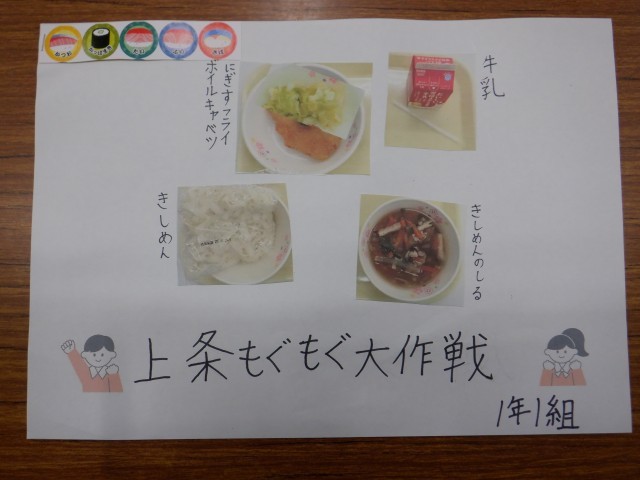 牛乳
にぎすフライ
ボイルキャベツ
きしめん
きしめんのしる
上条もぐもぐ大作戦
1年1組